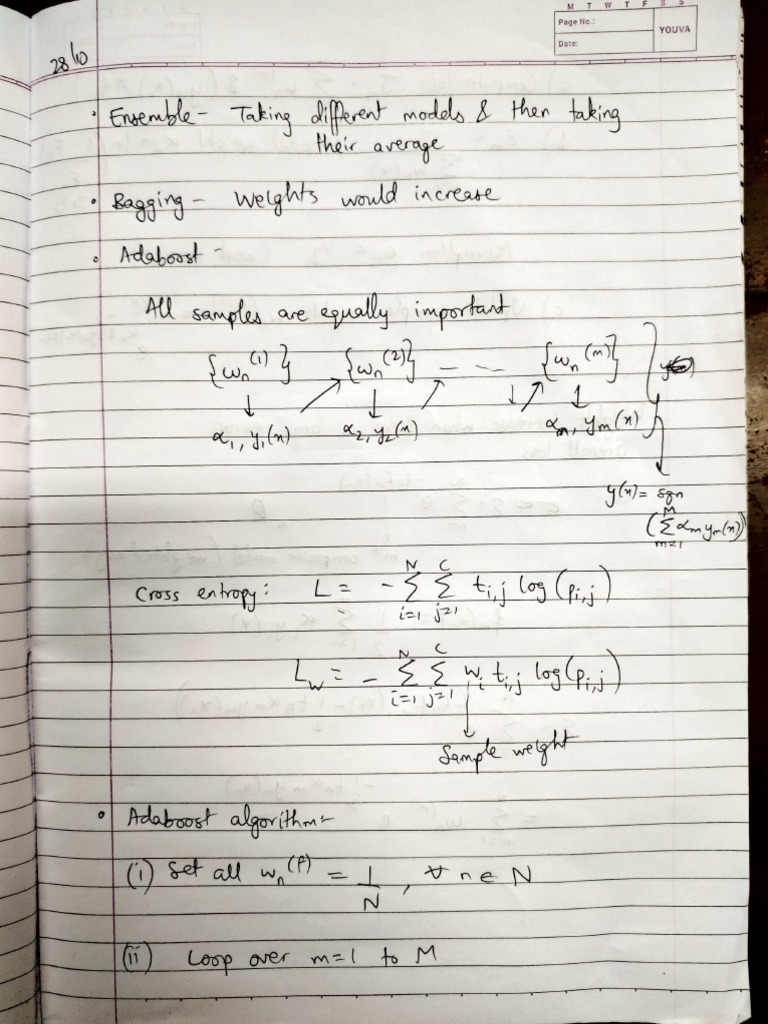 M T W T F S S
Page No.:
YOUVA
Date:
28/10
• Ensemble - Taking different models & then taking
their average
• Bagging - Weights would increase
• Adaboost -
All samples are equally important
{wₙ⁽¹⁾} {wₙ⁽²⁾} - - - {wₙ⁽ᵐ⁾}
α₁, y₁(x) α₂, y₂(x) αₘ, yₘ(x)
y(x) = sgn
(∑_{m=1}^{M} αₘ yₘ(x))
Cross entropy: L = - ∑_{i=1}^{N} ∑_{j=1}^{C} t_{i,j} log(p_{i,j})
L_w = - ∑_{i=1}^{N} ∑_{j=1}^{C} w_i t_{i,j} log(p_{i,j})
Sample weight
• Adaboost algorithm:-
(i) Set all wₙ⁽ᶠ⁾ = 1/N, ∀ n ∈ N
(ii) Loop over m=1 to M